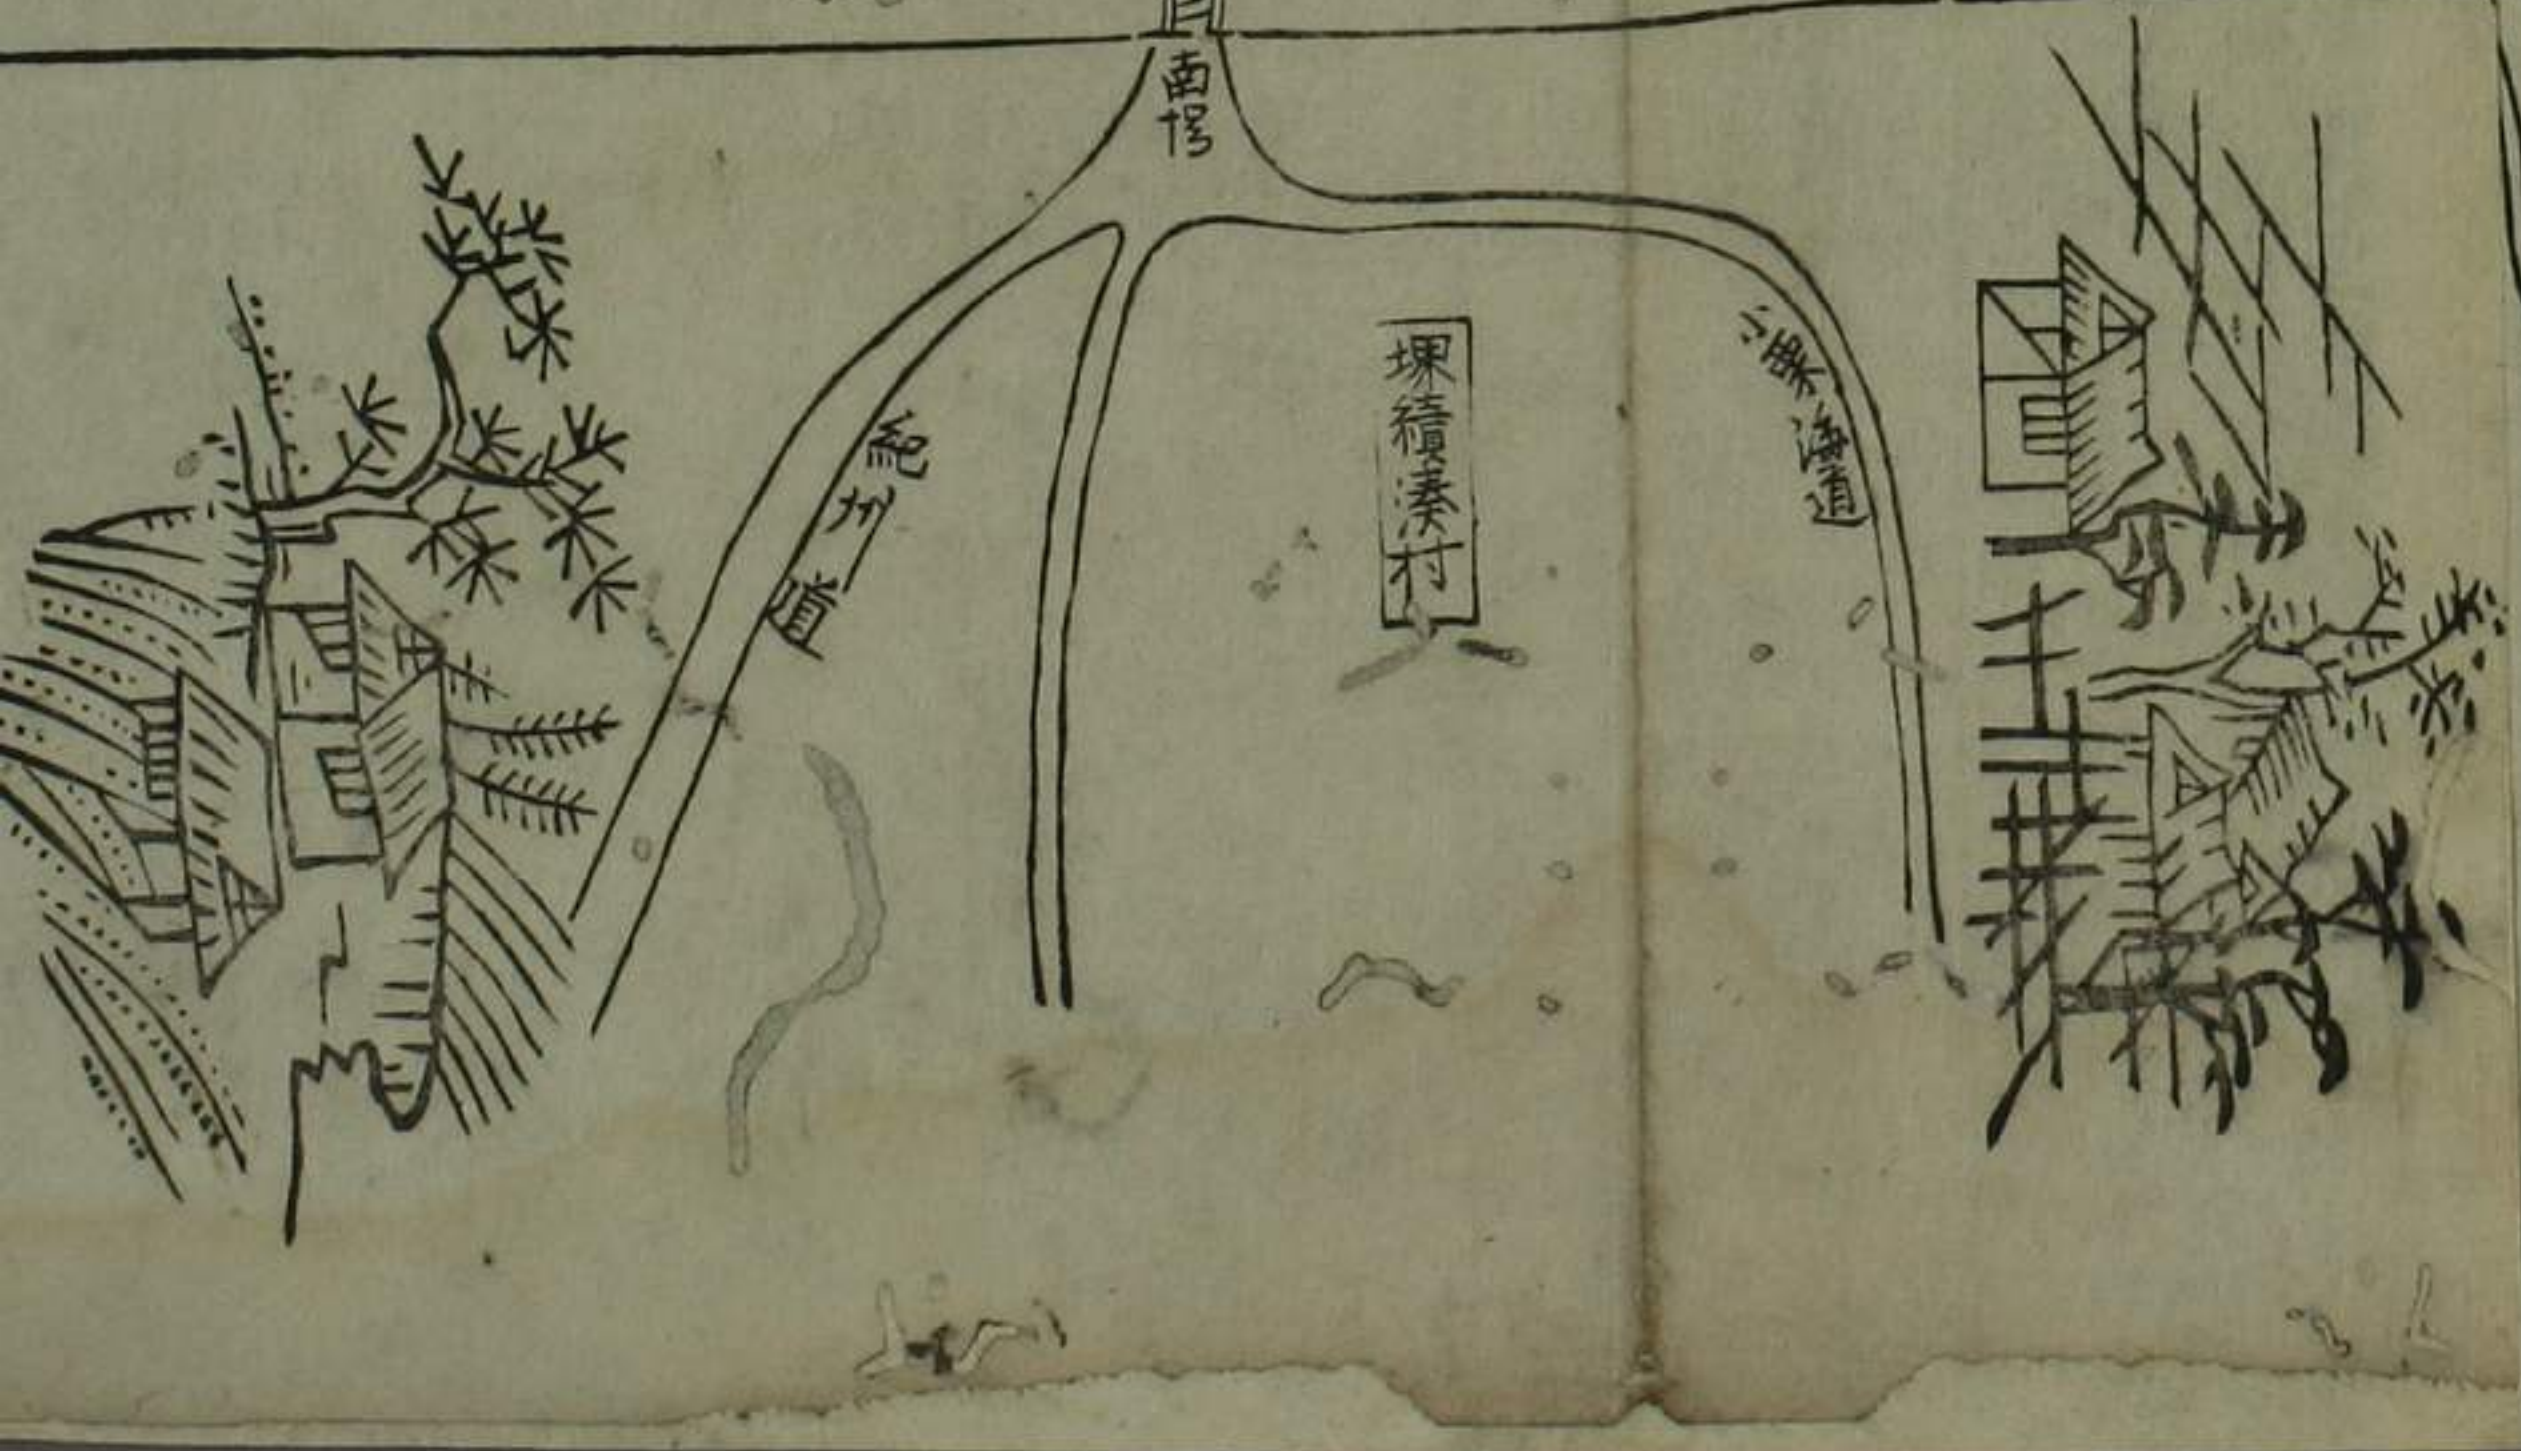 南
小栗海道
堺續湊村
紀州道